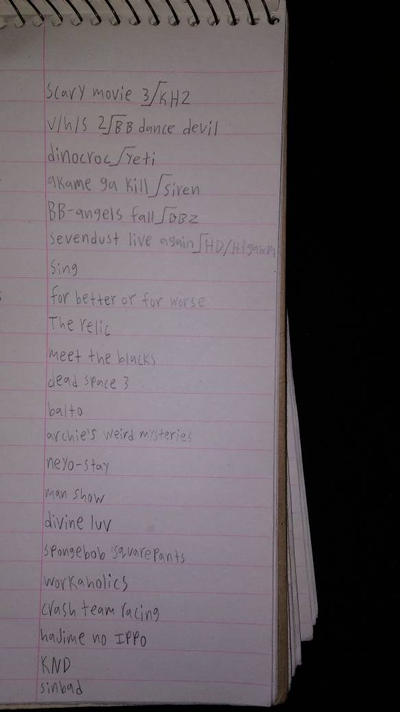 scary movie 3√KH2
v/h/s 2√BB dance devil
dinocroc√Yeti
akame ga kill√siren
BB-angels fall√DBZ
sevendust live again√HD/
sing
for better or for worse
The relic
meet the blacks
dead space 3
balto
archie's weird mysteries
neyo-stay
man show
divine luv
spongebob squarepants
workaholics
crash team racing
hajime no IPPO
KND
sinbad